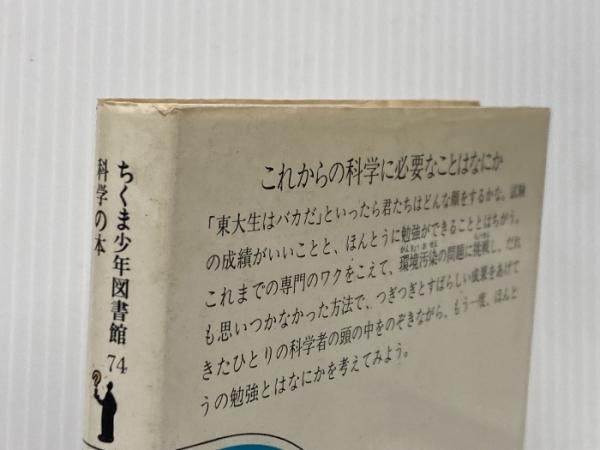 ちくま少年図書館 74
科学の本
これからの科学に必要なことはなにか
「東大生はバカだ」といったら君たちはどんな顔をするかな。試験
の成績がいいことと、ほんとうに勉強ができることとはちがう。
これまでの専門のワクをこえて、環境汚染の問題に挑戦し、だれ
も思いつかなかった方法で、つぎつぎとすばらしい成果をあげて
きたひとりの科学者の頭の中をのぞきながら、もう一度、ほんと
うの勉強とはなにかを考えてみよう。